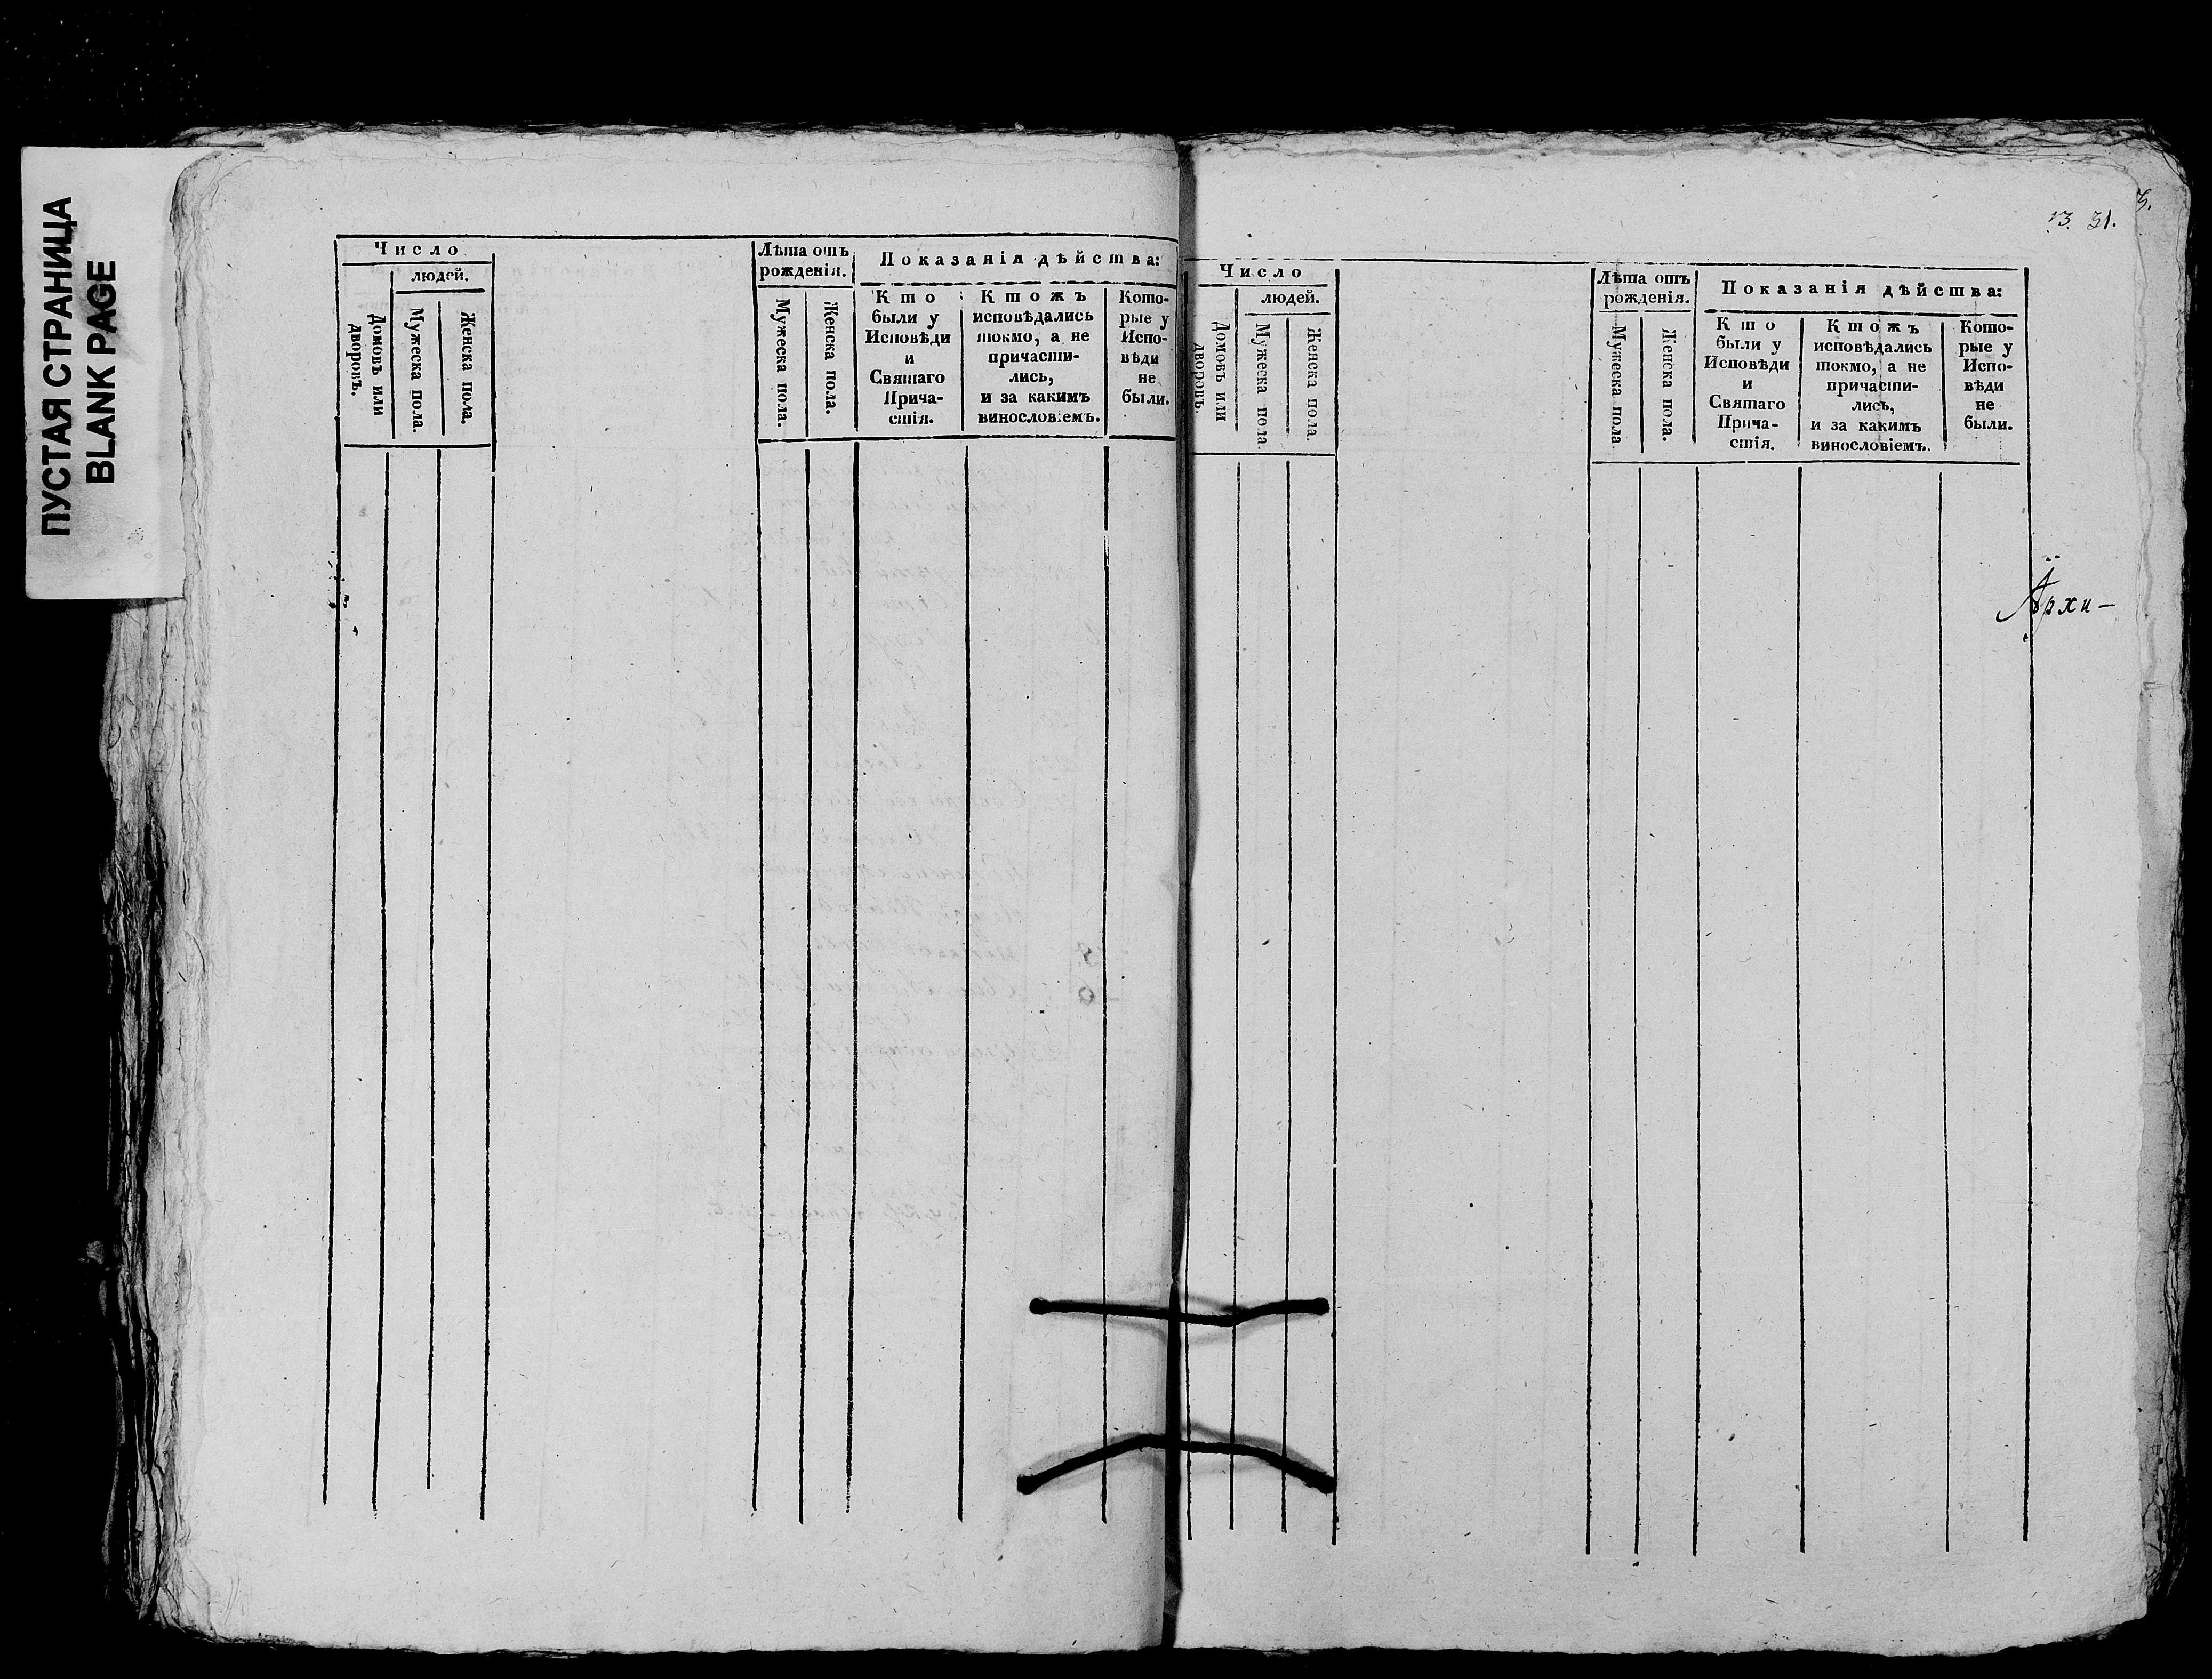 ПУСТАЯ СТРАНИЦА
BLANK PAGE
Число
людей.
Домовъ или
дворовъ.
Мужеска пола.
Женска пола.
Лѣта отъ
рожденія.
Мужеска пола.
Женска пола.
Показанія дѣйства:
Кто
были у
Исповѣди
и
Святаго
Прича-
стія.
Ктожъ
исповѣдались
токмо, а не
причасти-
лись,
и за какимъ
винословіемъ.
Кото-
рые у
Испо-
вѣди
не
были.
13. 31.
3.
Число
людей.
Домовъ или
дворовъ.
Мужеска пола.
Женска пола.
Лѣта отъ
рожденія.
Мужеска пола.
Женска пола.
Показанія дѣйства:
Кто
были у
Исповѣди
и
Святаго
Прича-
стія.
Ктожъ
исповѣдались
токмо, а не
причасти-
лись,
и за какимъ
винословіемъ.
Кото-
рые у
Испо-
вѣди
не
были.
Архи-